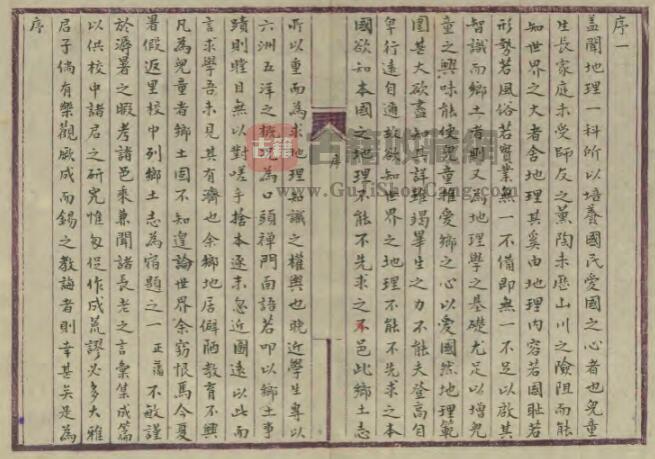 序一
蓋聞地理一科所以培養國民愛國之心者也兒童
生長家庭未受師友之薰陶未歷山川之險阻而能
知世界之大者舍地理其奚由地理內容若國恥若
形勢若風俗若實業無一不備即無一不足以啟其
智識而鄉土者則又為地理學之基礎尤足以增兒
童之興味能使兒童推愛鄉之心以愛國然地理範
圍甚大欲盡知其詳雖竭畢生之力不能夫登高自
卑行遠自邇故欲知世界之地理不能不先求之本
國欲知本國之地理不能不先求之本邑此鄉土志
所以重而為求地理知識之權輿也晚近學生專以
六洲五洋之為口頭禪門面語若叩以鄉土事
蹟則瞠目無以對嗟乎捨本逐末忽近圖遠以此而
言求學吾未見其有濟也余鄉地居僻陋教育不興
凡為兒童者鄉土固不知遑論世界余竊恨焉今夏
暑假返里校中列鄉土志為宿題之一 不敏謹
於溽暑之暇考諸邑乘兼聞諸長老之言彙集成篇
以供校中諸君之研究惟匆促作成荒謬必多大雅
君子倘有樂觀厥成而錫之教誨者則幸甚矣是為
序
古籍收藏網
www.GuJiShouCang.com
古籍